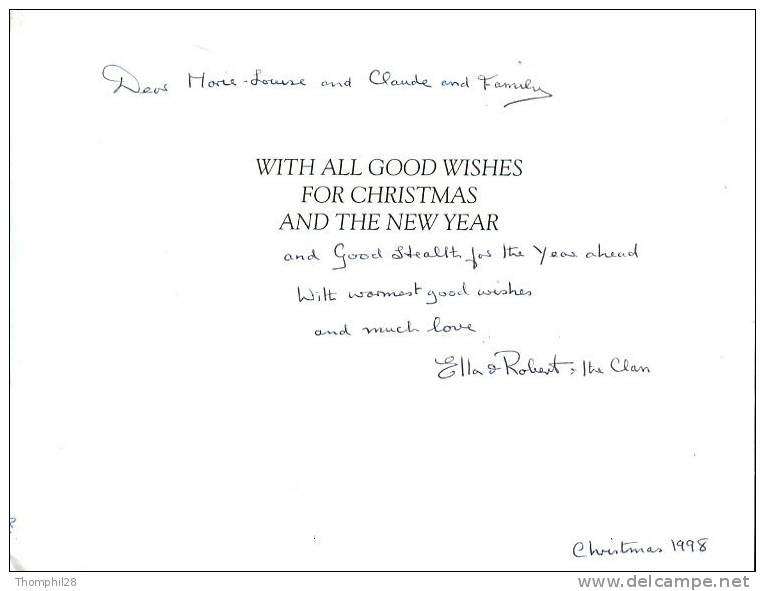 Dear Marie-Louise and Claude and Family
WITH ALL GOOD WISHES
FOR CHRISTMAS
AND THE NEW YEAR
and Good Health for the Year ahead
With warmest good wishes
and much love
Ella & Robert & the Clan
Christmas 1998
Thomphil28
delcampe.net